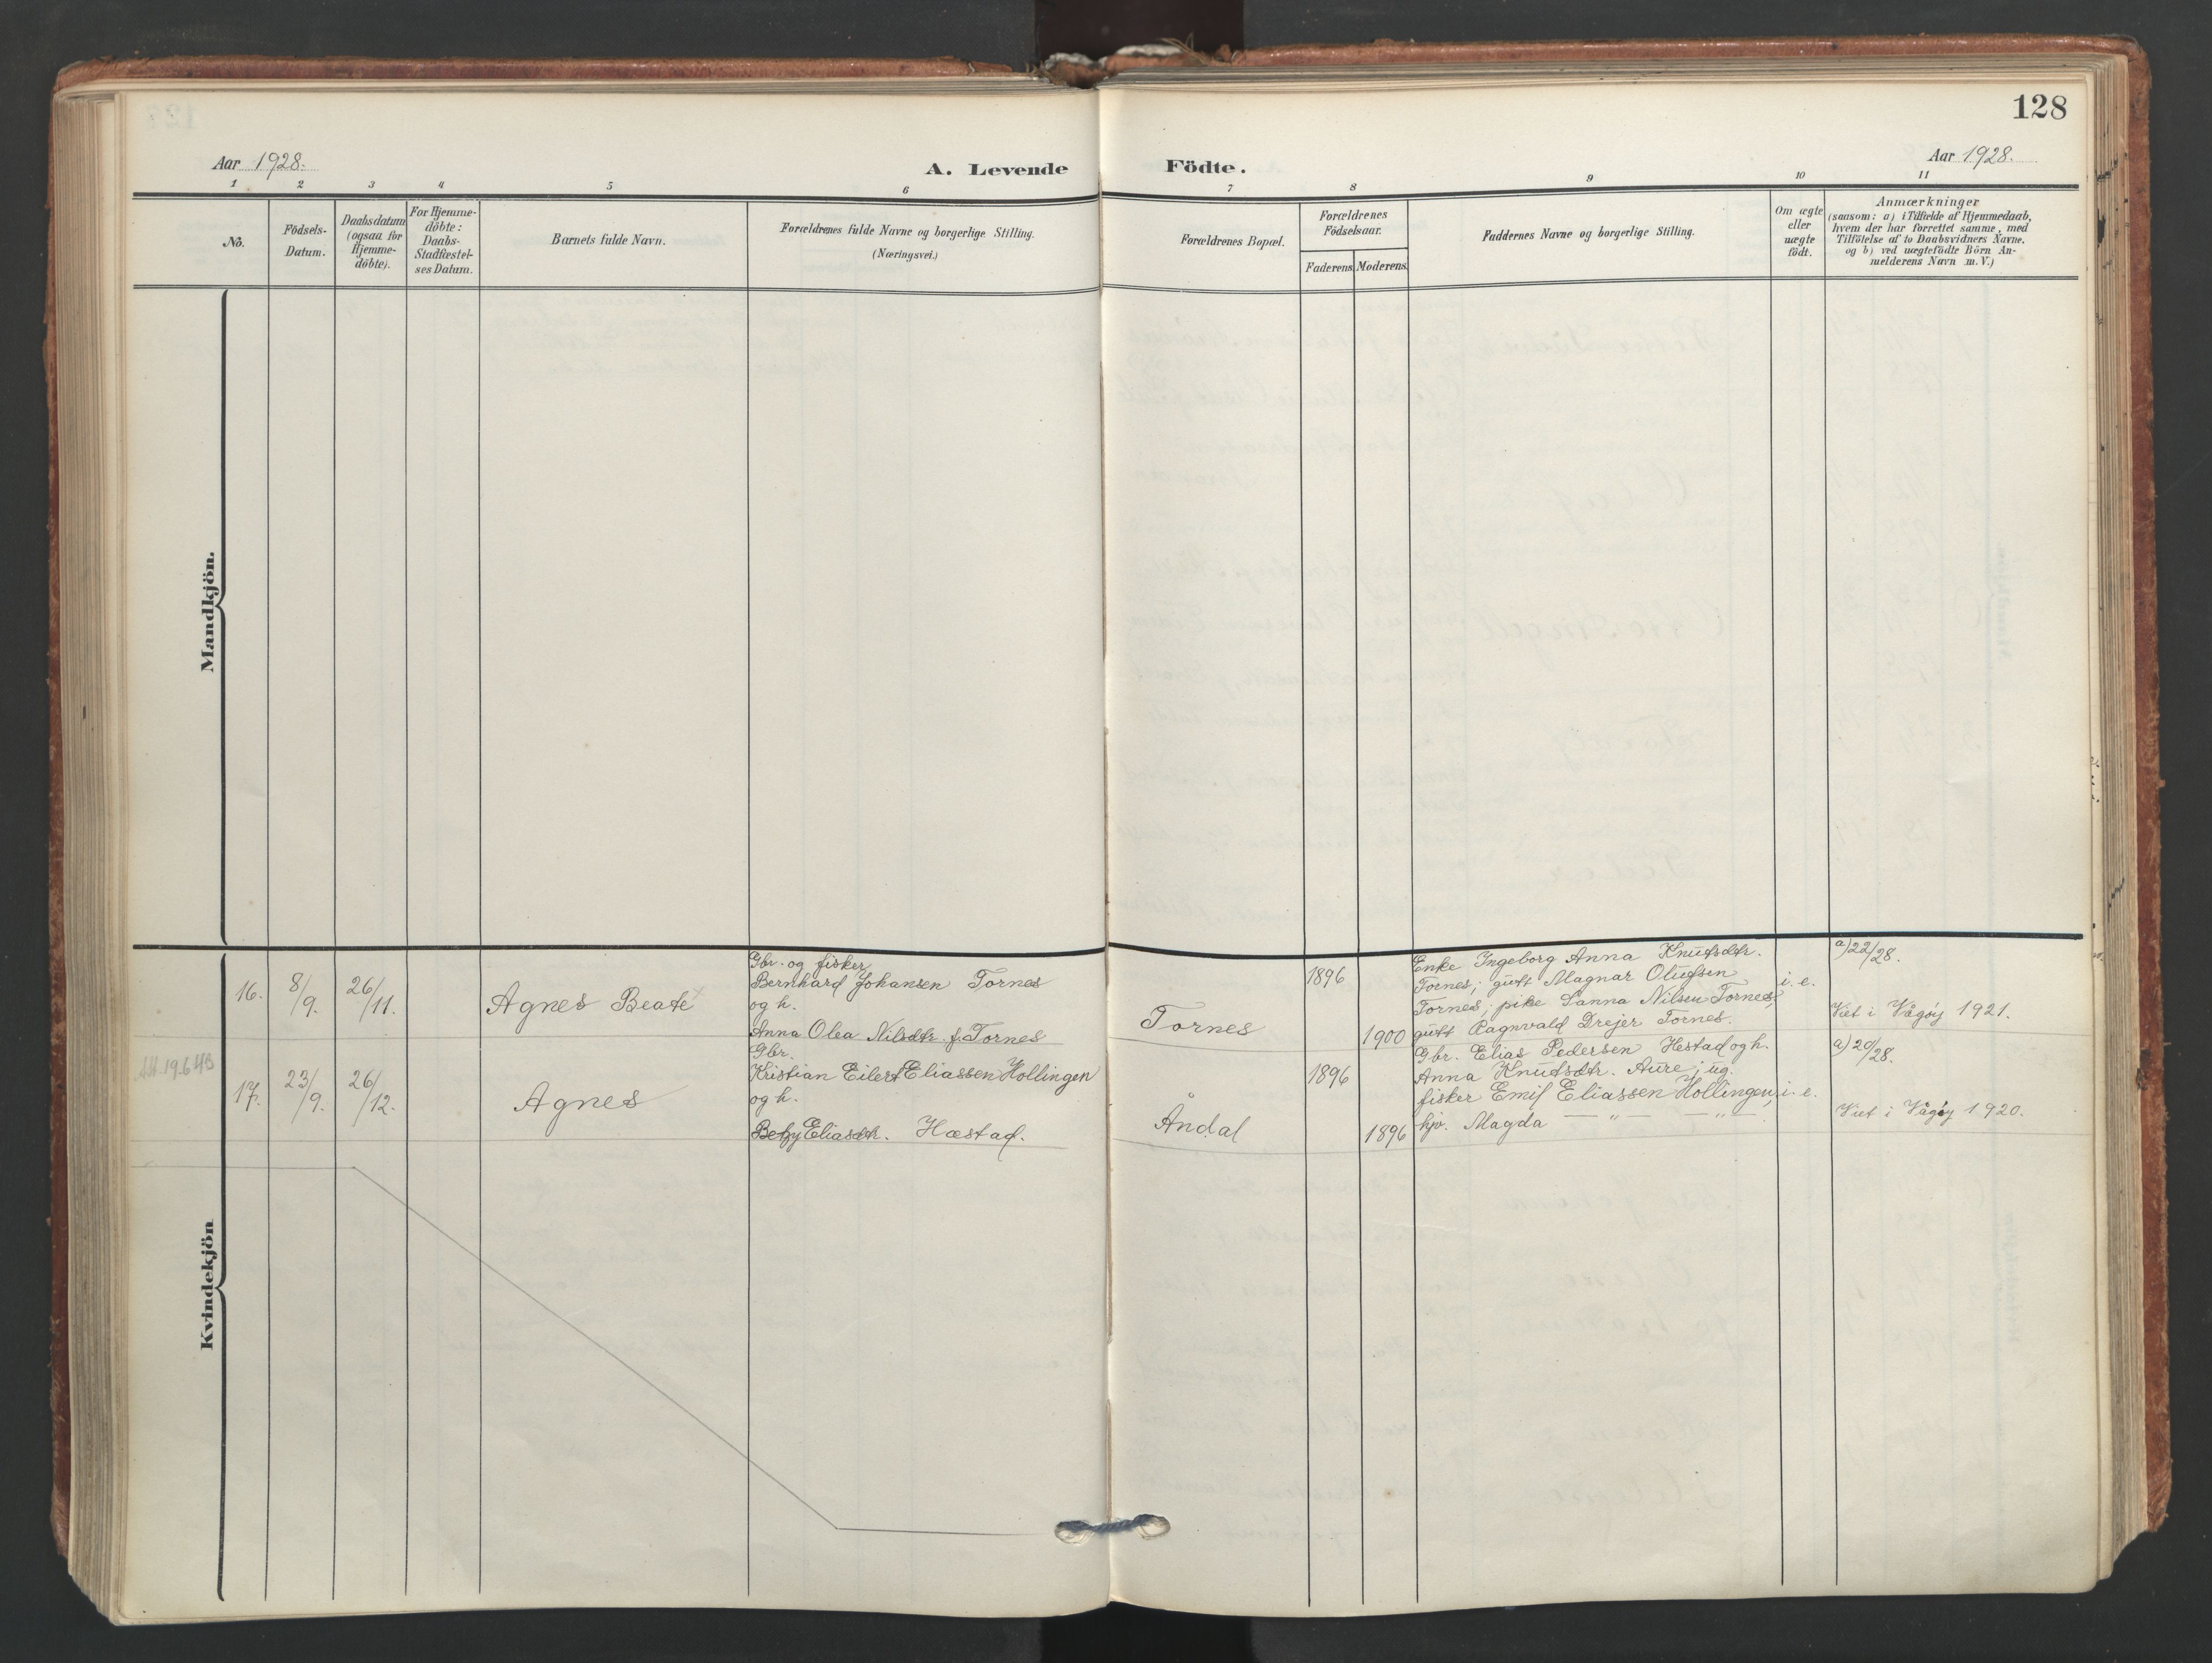 128
Aar 1928.
A. Levende Födte.
Aar 1928.
1 2 3 4 5 6 7 8 9 10 11
No.
Födsels-
Datum.
Daabsdatum
(ogsaa for
Hjemme-
döbte).
For Hjemme-
döbte:
Daabs-
Stadfæstel-
ses Datum.
Barnets fulde Navn.
Forældrenes fulde Navne og borgerlige Stilling.
(Næringsvei.)
Forældrenes Bopæl.
Forældrenes
Födselsaar.
Faderens. Moderens.
Faddernes Navne og borgerlige Stilling.
Om ægte
eller
uægte
födt.
Anmærkninger
(saasom: a) i Tilfælde af Hjemmedaab,
hvem der har forrettet samme, med
Tilföielse af to Daabsvidners Navne.
og b) ved uægtefödte Börn An-
melderens Navn m. V.)
Mandkjön.
Kvindekjön
16.
8/9.
26/11.
Agnes Beate
Gbr. og fisker
Bernhard Johansen Tornes
og h.
Anna Olea Nilsdtr. f. Tornes
Tornes
1896
1900
Enke Ingeborg Anna Knutsdtr.
Tornes; gutt Magnar Olufsen
Tornes; pike Sanna Nilsen Tornes;
gutt Ragnvald Drejer Tornes.
i. e.
a) 22/28.
Viet i Vågøy 1921.
17.
23/9.
26/12.
Agnes
Gbr.
Kristian Eilert Eliassen Hollingen
og h.
Betzy Eliasdtr. Hæstad.
Åndal
1896
1896
Gbr. Elias Pedersen Hestad og h.
Anna Knutsdtr. Aure; ug.
fisker Emil Eliassen Hollingen;
hjv. Magda — " — — " —
i. e.
a) 20/28.
Viet i Vågøy 1920.